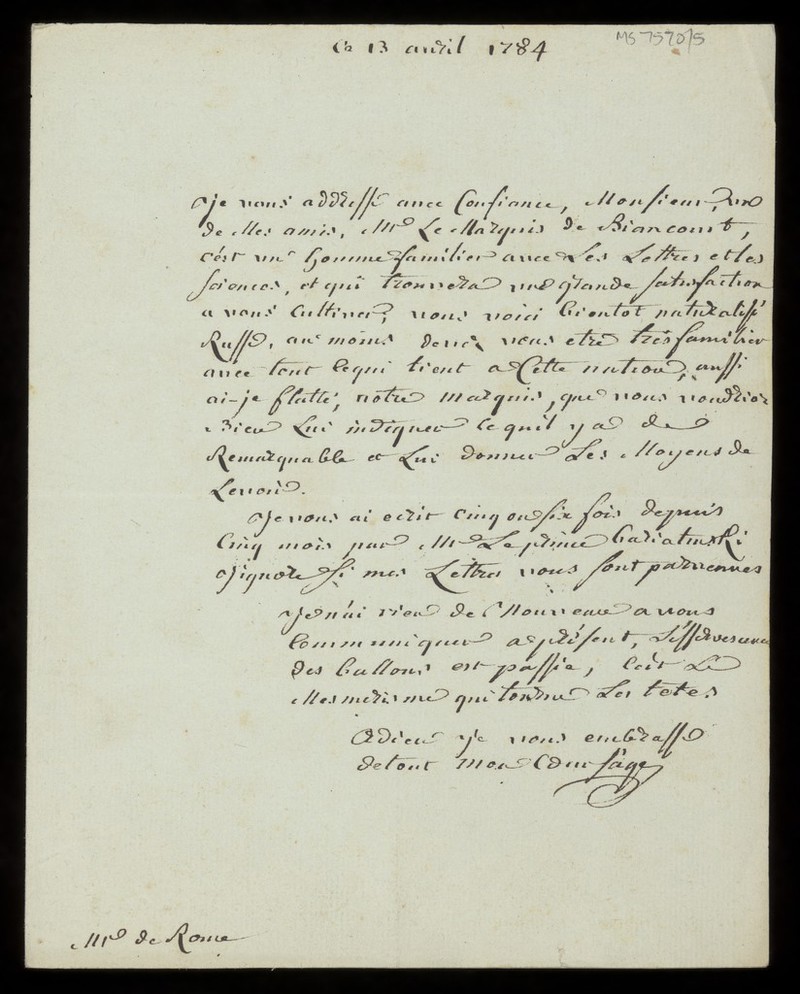 Ce 13 avril 1784
MS 7570/5
Je vous addresse avec Confiance, Monsieur, un
de Mes amis, Mr Le Marquis de Biancourt,
c'ést un homme familier avec Les Lettres et les
Sciences, et qui trouvera une grande satisfaction
a vous Cultiver, vous voici bientot naturalisé
Russe, au moins devez vous etre trés familier
avec tout Cequi tient a Cette nation, aussi
ai-je flatté, notre marquis, que vous voudriez
Bien Lui indiquer Ce quil y a de
Remarquable et Lui donner Les Moyens de
Levoir.
Je vous ai ecrit Cinq ou six fois depuis
Cinq mois par Mr Le prince bariatinski
J'ignore Si mes Lettres vous sont parvennues
Je n'ai rien de Nouveau a vous
Communiquer a présent, L'éffervescence
des ballons est passée, Cést Le
Mesmerisme qui tourne Les tetes
Adieu je vous embrasse
de tout mon Cœur Sage
Mr de Rome